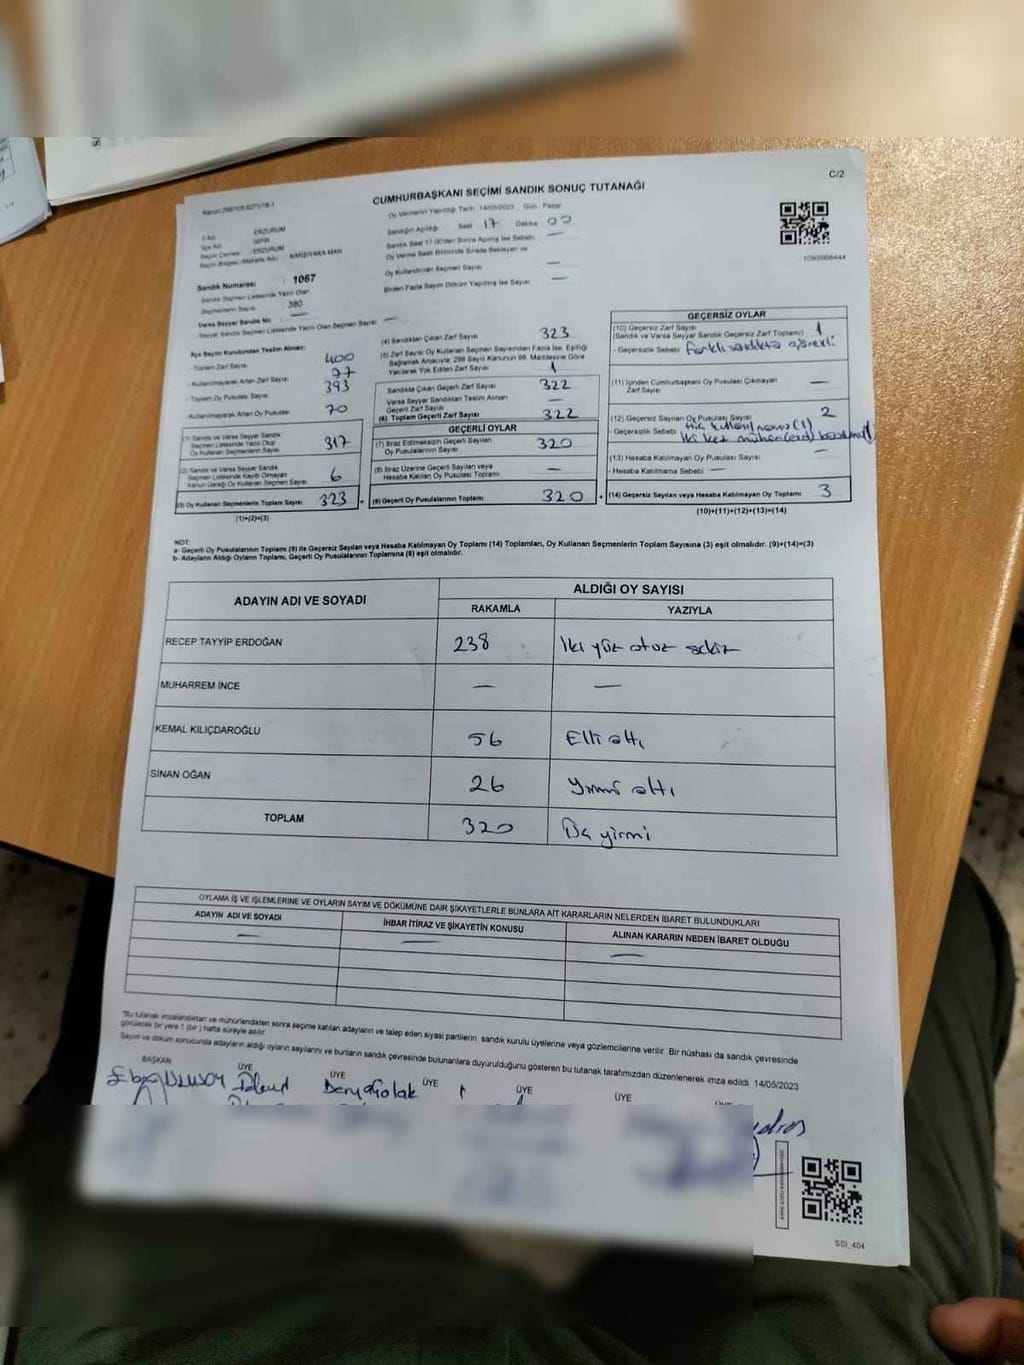 C/2
CUMHURBAŞKANI SEÇİMİ SANDIK SONUÇ TUTANAĞI
Oy Vermenin Yapıldığı Tarih: 14/05/2023 Gün: Pazar
Sandığın Açıldığı Saat 17 Dakika 00
Sandık Saat 17:00'den Sonra Açılmış İse Sebebi —
Oy Verme Saati Bitiminde Sırada Bekleyen ve
Oy Kullandırılan Seçmen Sayısı —
Birden Fazla Sayım Döküm Yapılmış İse Sayısı —
1093568444
İli Adı : ERZURUM
İlçe Adı : İSPİR
Seçim Çevresi : ERZURUM
Seçim Bölgesi (Mahalle Adı) : KARŞIYAKA MAH.
Sandık Numarası : 1067
Sandık Seçmen Listesinde Yazılı Olan
Seçmenlerin Sayısı : 380
Varsa Seyyar Sandık No —
- Seyyar Sandık Seçmen Listesinde Yazılı Olan Seçmen Sayısı —
İlçe Seçim Kurulundan Teslim Alınan:
- Toplam Zarf Sayısı 400
- Kullanılmayarak Artan Zarf Sayısı 77
- Toplam Oy Pusulası Sayısı 393
- Kullanılmayarak Artan Oy Pusulası 70
(1) Sandık ve Varsa Seyyar Sandık
Seçmen Listesinde Yazılı Olup
Oy Kullanan Seçmenlerin Sayısı 317
(2) Sandık ve Varsa Seyyar Sandık
Seçmen Listesinde Kayıtlı Olmayan
Kanun Gereği Oy Kullanan Seçmen Sayısı 6
(3) Oy Kullanan Seçmenlerin Toplam Sayısı 323
(1)+(2)=(3)
(4) Sandıktan Çıkan Zarf Sayısı 323
(5) Zarf Sayısı Oy Kullanan Seçmen Sayısından Fazla İse, Eşitliği
Bağlamak Amacıyla; 298 Sayılı Kanunun 98. Maddesine Göre
Yakılarak Yok Edilen Zarf Sayısı 1
Sandıkta Çıkan Geçerli Zarf Sayısı 322
Varsa Seyyar Sandıktan Teslim Alınan
Geçerli Zarf Sayısı —
(6) Toplam Geçerli Zarf Sayısı 322
GEÇERLİ OYLAR
(7) İtiraz Edilmeksizin Geçerli Sayılan
Oy Pusulasının Sayısı 320
(8) İtiraz Üzerine Geçerli Sayılan veya
Hesaba Katılan Oy Pusulası Toplamı —
(9) Geçerli Oy Pusulalarının Toplamı 320
GEÇERSİZ OYLAR
(10) Geçersiz Zarf Sayısı 1
(Sandık ve Varsa Seyyar Sandık Geçersiz Zarf Toplamı)
- Geçersizlik Sebebi Farklı sandıkta
(11) İçinden Cumhurbaşkanı Oy Pusulası Çıkmayan
Zarf Sayısı —
(12) Geçersiz Sayılan Oy Pusulası Sayısı 2
- Geçersizlik Sebebi (1)
iki kez
(13) Hesaba Katılmayan Oy Pusulası Sayısı —
- Hesaba Katılmama Sebebi —
(14) Geçersiz Sayılan veya Hesaba Katılmayan Oy Toplamı 3
(10)+(11)+(12)+(13)=(14)
NOT:
a- Geçerli Oy Pusulalarının Toplamı (9) ile Geçersiz Sayılan veya Hesaba Katılmayan Oy Toplamı (14) Toplamları, Oy Kullanan Seçmenlerin Toplam Sayısına (3) eşit olmalıdır. (9)+(14)=(3)
b- Adayların Aldığı Oyların Toplamı, Geçerli Oy Pusulalarının Toplamına (9) eşit olmalıdır.
ADAYIN ADI VE SOYADI ALDIĞI OY SAYISI
RAKAMLA YAZIYLA
RECEP TAYYİP ERDOĞAN 238 İki yüz otuz sekiz
MUHARREM İNCE — —
KEMAL KILIÇDAROĞLU 56 Elli altı
SİNAN OĞAN 26 Yirmi altı
TOPLAM 320 yirmi
OYLAMA İŞ VE İŞLEMLERİNE VE OYLARIN SAYIM VE DÖKÜMÜNE DAİR ŞİKAYETLERLE BUNLARA AİT KARARLARIN NELERDEN İBARET BULUNDUKLARI
ADAYIN ADI VE SOYADI İHBAR İTİRAZ VE ŞİKAYETİN KONUSU ALINAN KARARIN NEDEN İBARET OLDUĞU
— — —
"Bu tutanak imzalandıktan ve mühürlendikten sonra seçime katılan adayların ve talep eden siyasi partilerin sandık kurulu üyelerine veya gözlemcilerine verilir. Bir nüshası da sandık çevresinde
görülecek bir yere 1 (bir) hafta süreyle asılır.
Sayım ve döküm sonucunda adayların aldığı oyların sayılarını ve bunların sandık çevresinde bulunanlara duyurulduğunu gösteren bu tutanak tarafımızdan düzenlenerek imza edildi. 14/05/2023
BAŞKAN ÜYE ÜYE ÜYE ÜYE ÜYE
Derya Çolak
SSI_404